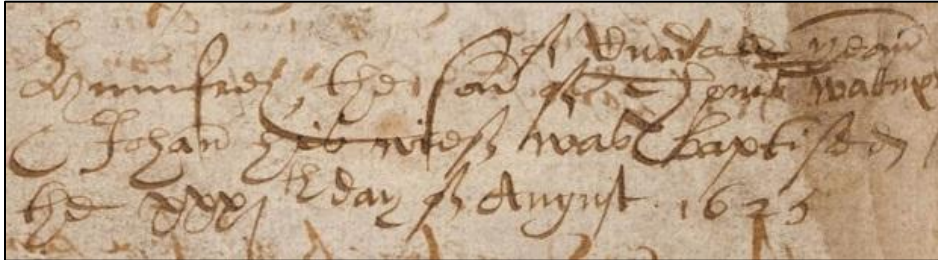 of
Humfrey the son of Thomas
& Johan his wife was baptised
the xxxj th day of August 1625